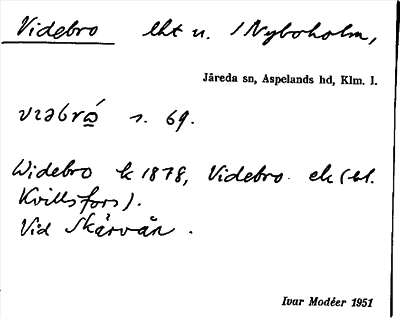 Videbro lht u. /Nyboholm,
Järeda sn, Aspelands hd, Klm. l.
s. 69.
Widebro k 1878, Videbro ek (bl.
Kvillsfors).
Vid Skärvån.
Ivar Modéer 1951